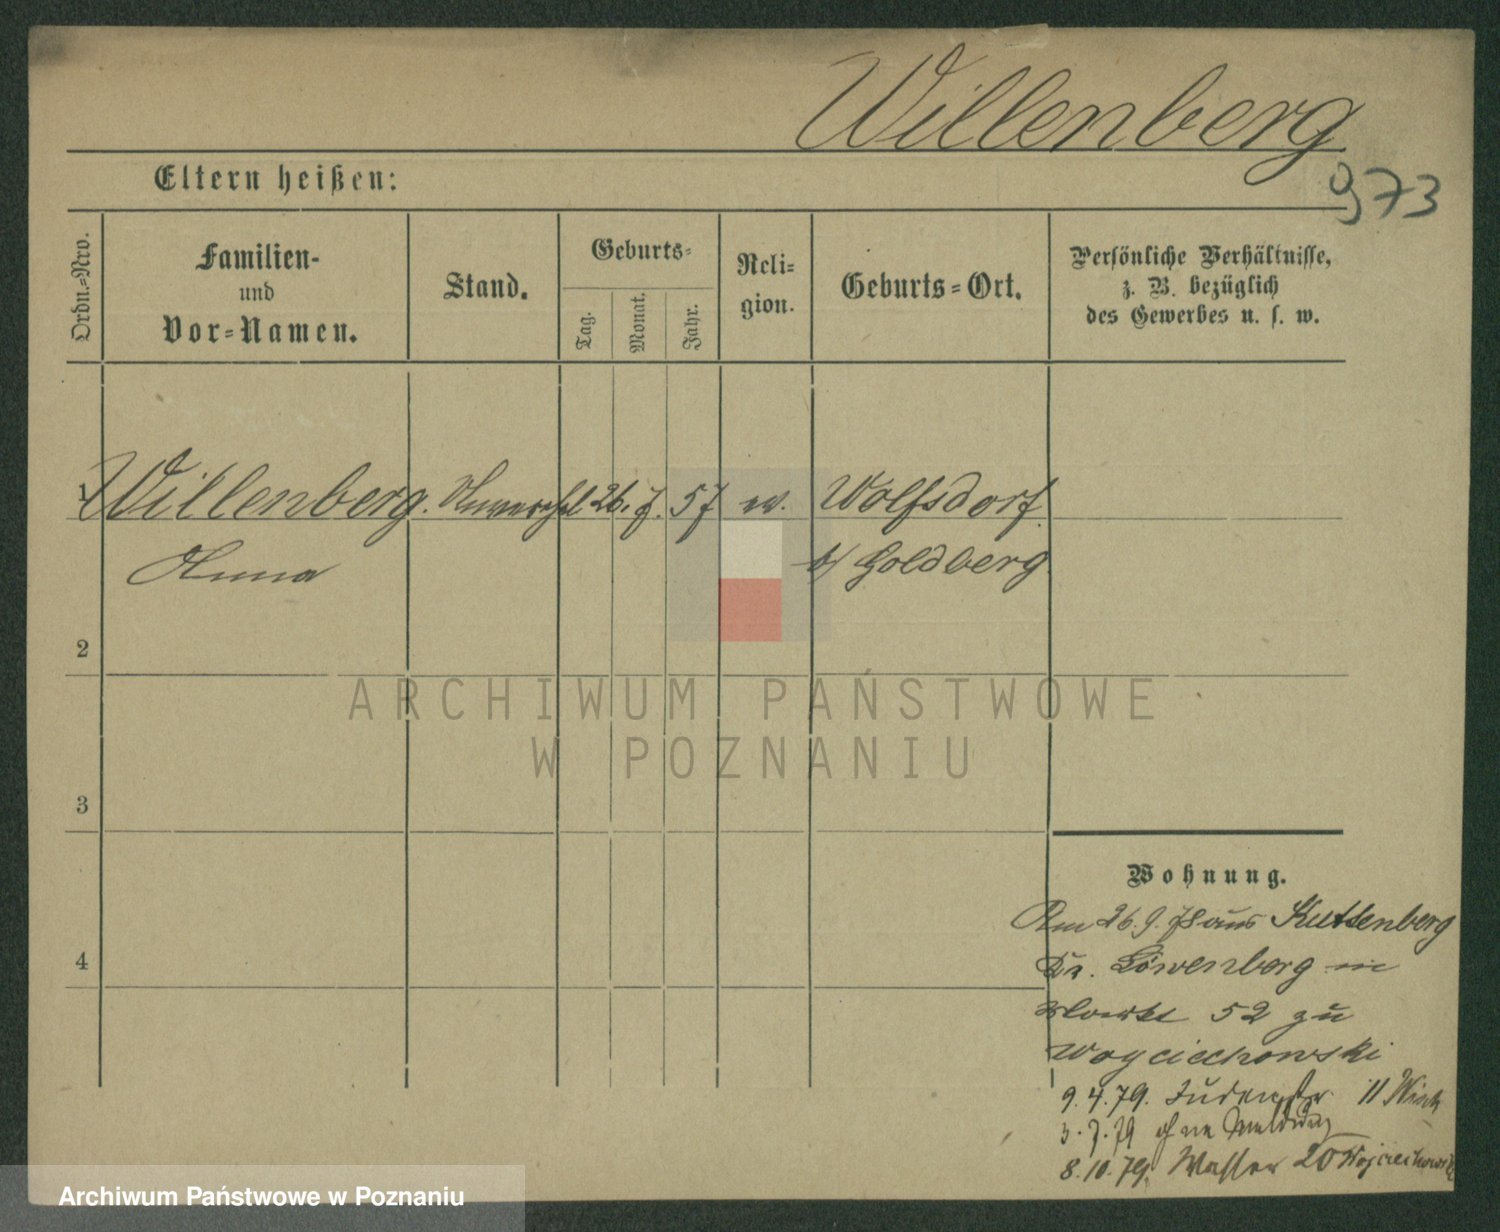 Willenberg
973
Eltern heißen:
Ordn.-Nro.
Familien-
und
Vor-Namen.
Stand.
Geburts-
Tag.
Monat.
Jahr.
Reli-
gion.
Geburts-Ort.
Persönliche Verhältnisse,
z. B. bezüglich
des Gewerbes u. s. w.
1 Willenberg. Unverehel. 26. 7. 57 ev. Wolfsdorf
Anna b/ Goldberg
2
ARCHIWUM PAŃSTWOWE
W POZNANIU
3
Wohnung.
Am 26.9.78 aus Kuttenberg
4
Kr. Löwenberg in
Markt 52 zu
Woyciechowski
9.4.79. Judenstr. 11
3.7.79 ohne Meldung
8.10.79. Wasser 20 Wojciechowski
Archiwum Państwowe w Poznaniu